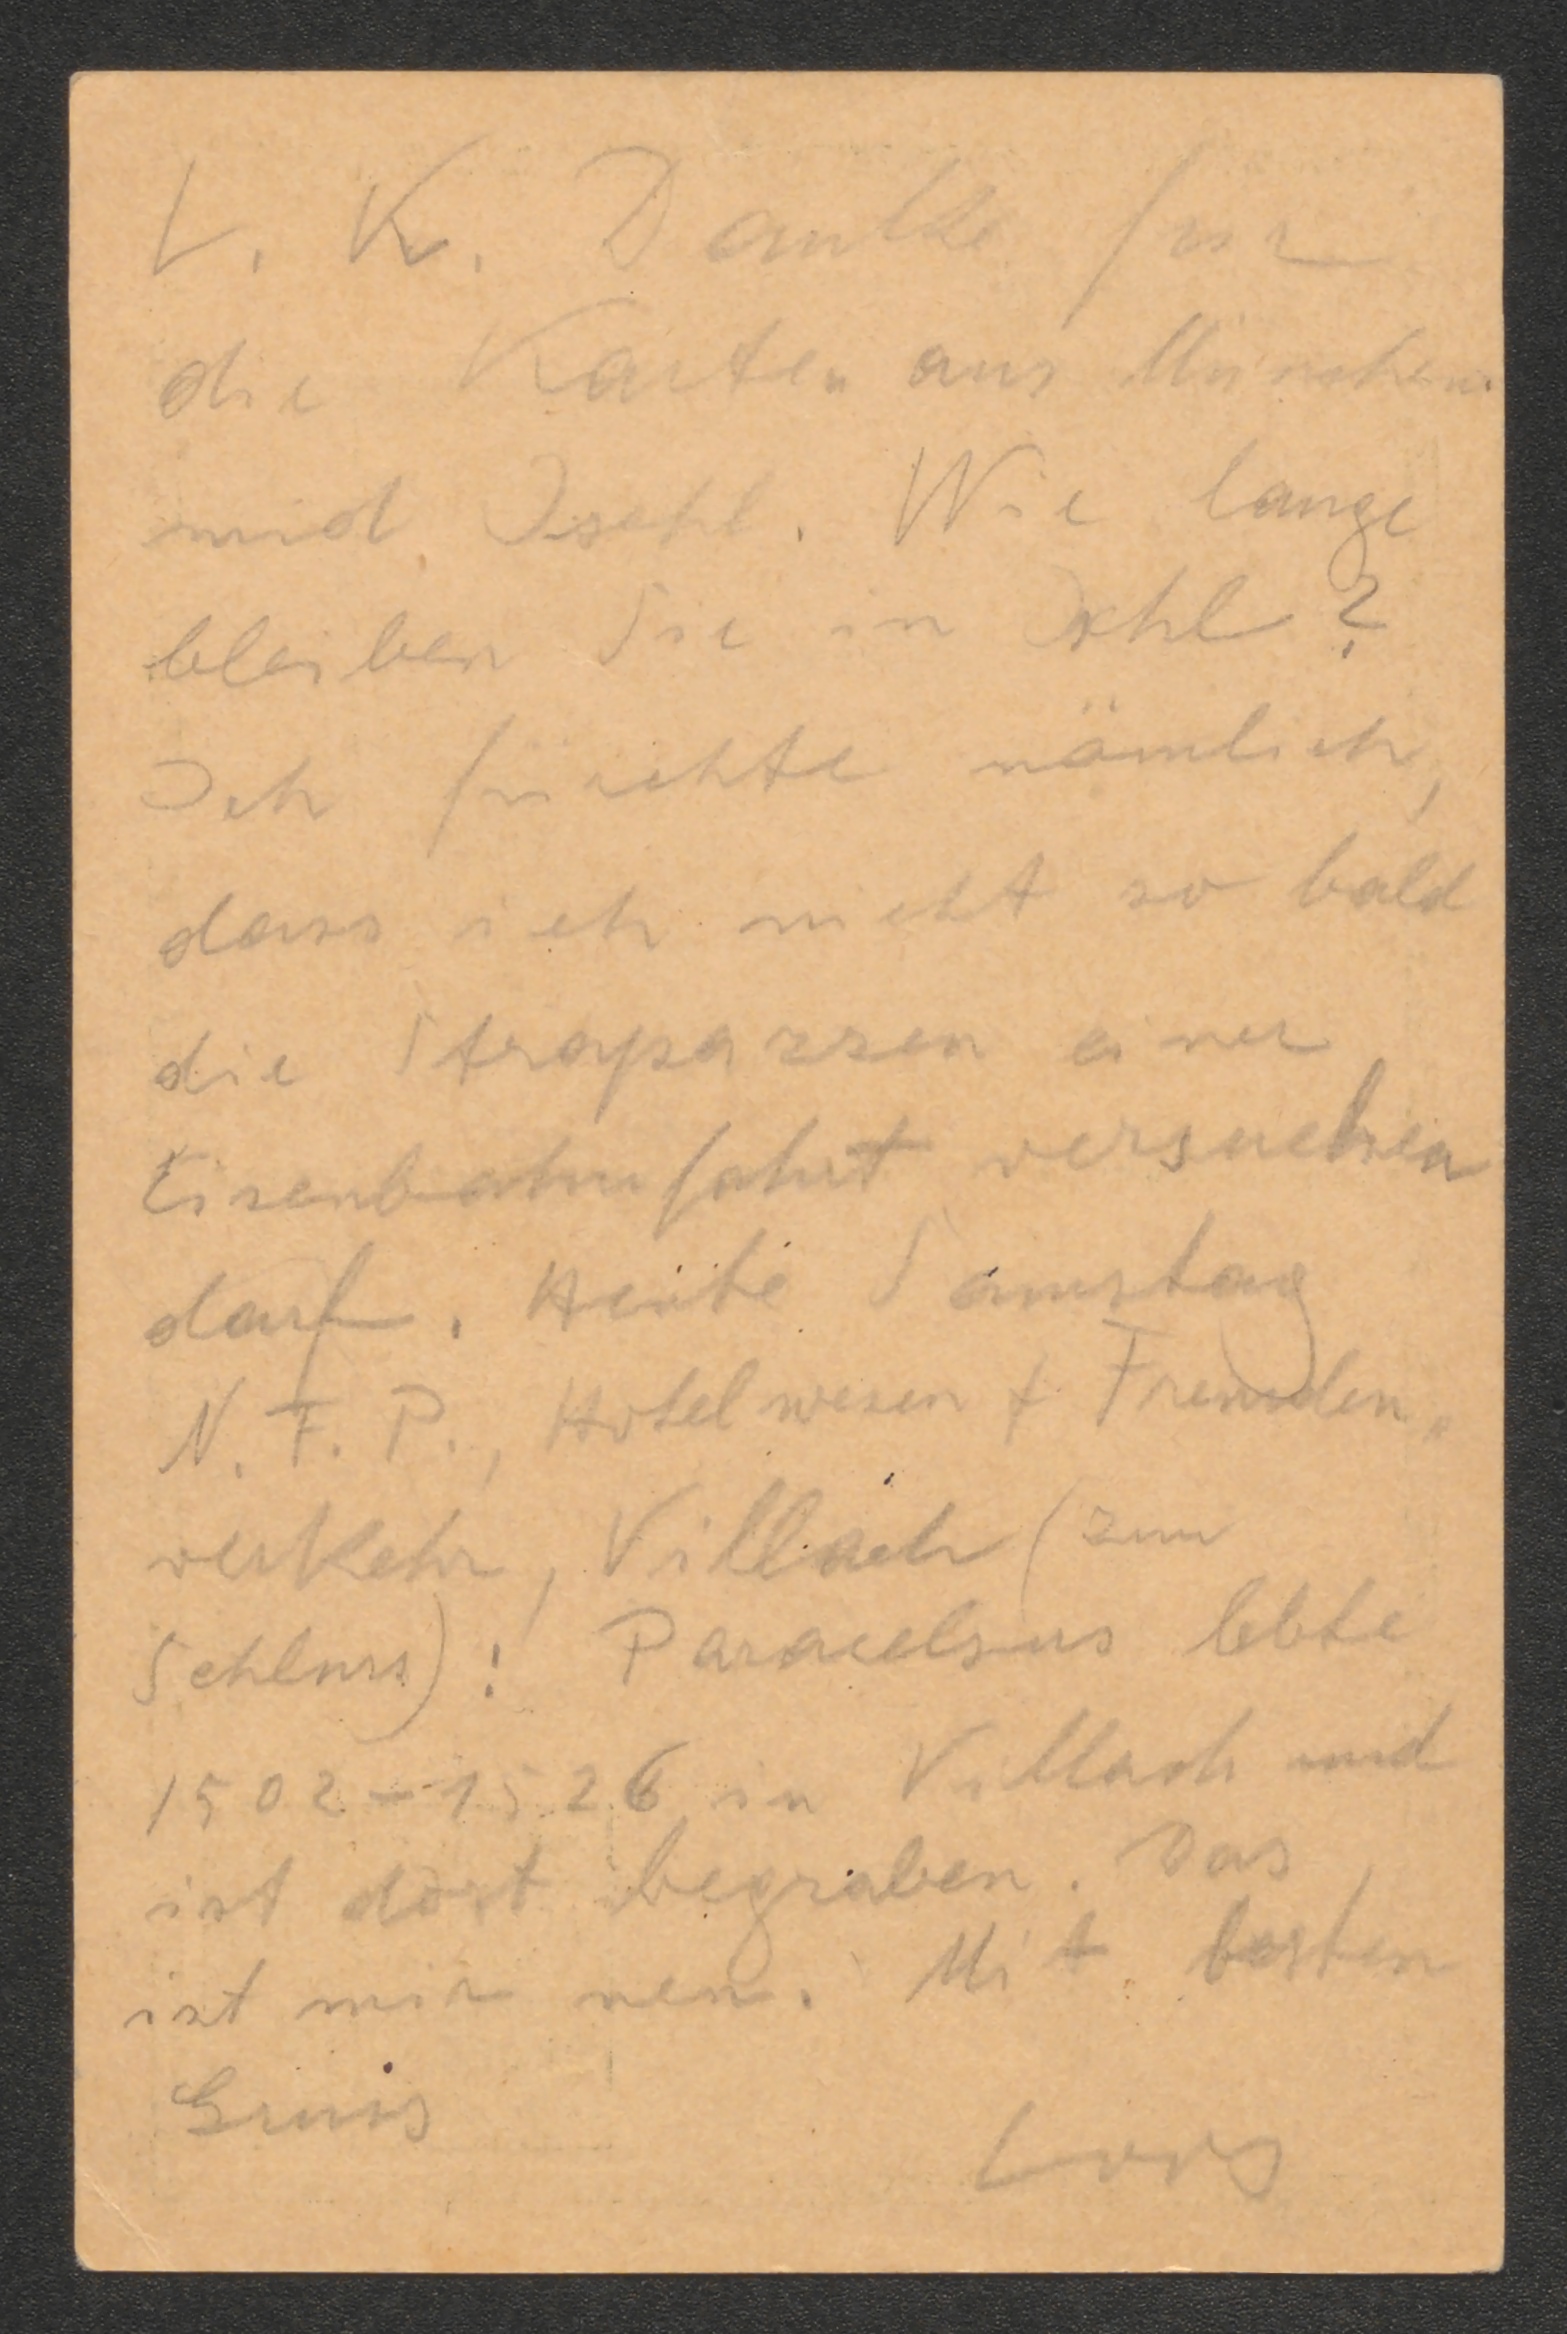 L. K. Danke für
die Karten aus München
und Ischl. Wie lange
bleiben Sie in Ischl?
Ich fürchte nämlich,
dass ich nicht so bald
die Strapazzen einer
Eisenbahnfahrt versuchen
darf. Heute Samstag
N. F. P., Hotelwesen + Fremden-
verkehr, Villach (zum
Schluss): Paracelsus lebte
1502–1526 in Villach und
ist dort begraben. Das
ist mir neu. Mit besten
Gruss
Loos